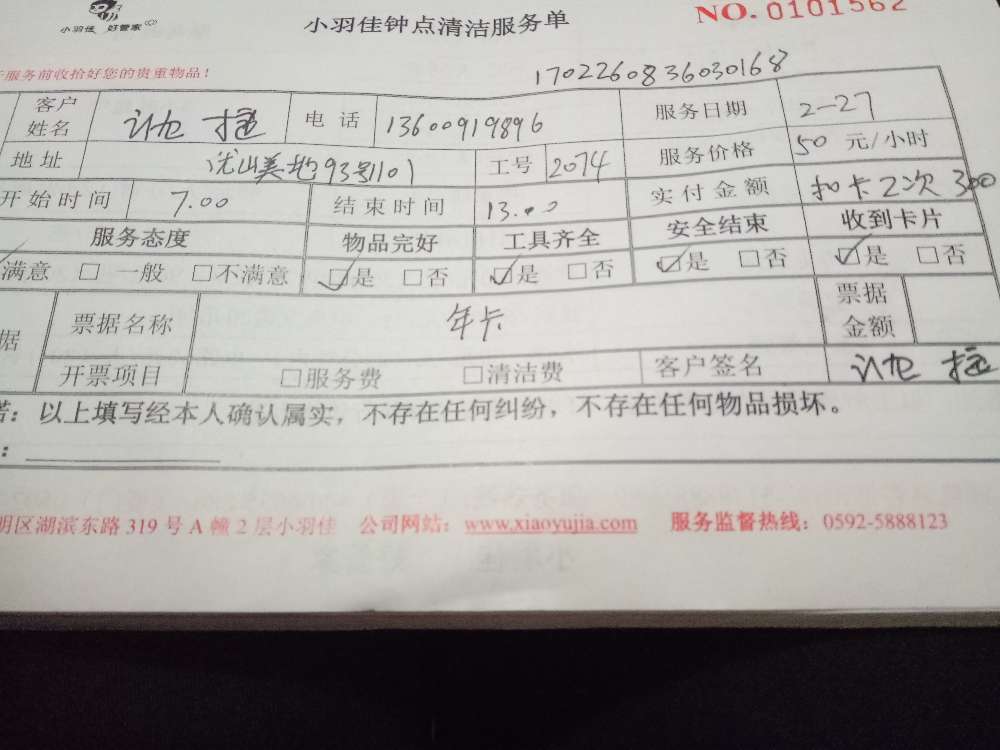 小羽佳 好管家
小羽佳钟点清洁服务单
NO. 0101562
服务前收拾好您的贵重物品！
1702260836030168
客户姓名 电话 13600919896 服务日期 2-27
地址 优山美地93号1101 工号 2074 服务价格 50 元/小时
开始时间 7.00 结束时间 13.00 实付金额 扣卡2次 300
服务态度 物品完好 工具齐全 安全结束 收到卡片
满意 □ 一般 □不满意 ☑是 □否 ☑是 □否 ☑是 □否 ☑是 □否
据 票据名称 年卡 票据金额
开票项目 □服务费 □清洁费 客户签名
诺：以上填写经本人确认属实，不存在任何纠纷，不存在任何物品损坏。
：
明区湖滨东路 319 号 A 幢 2 层小羽佳 公司网站：www.xiaoyujia.com 服务监督热线：0592-5888123